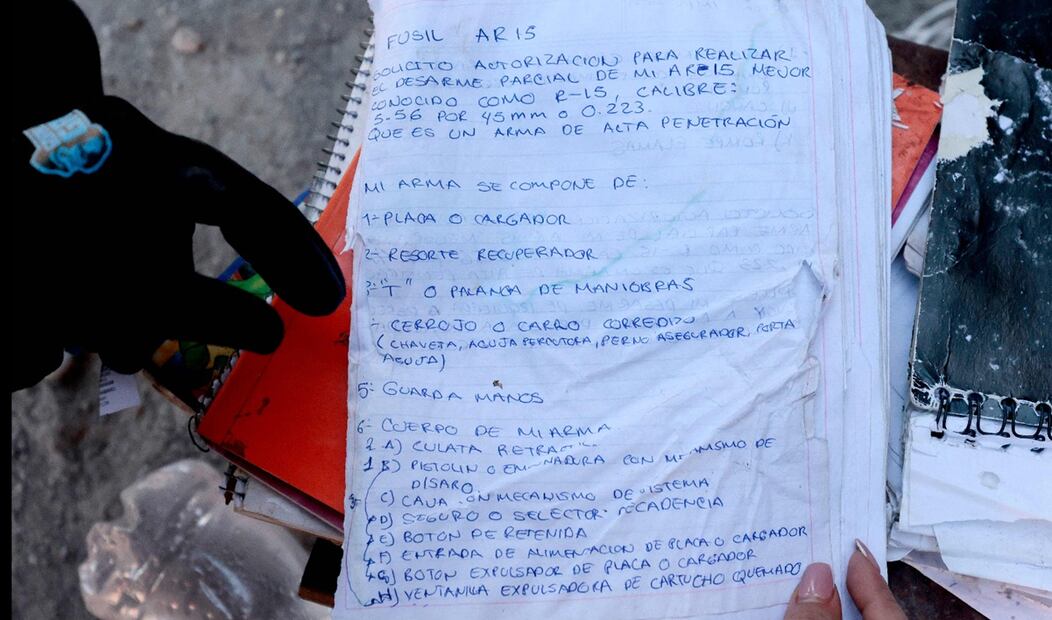 FUSIL AR15
SOLICITO AUTORIZACION PARA REALIZAR
EL DESARME PARCIAL DE MI ARE15, MEJOR
CONOCIDO COMO R-15, CALIBRE:
5.56 POR 45mm O 0.223.
QUE ES UN ARMA DE ALTA PENETRACIÓN
MI ARMA SE COMPONE DE:
1- PLACA O CARGADOR
2- RESORTE RECUPERADOR
3- "T" O PALANCA DE MANIOBRAS
- CERROJO O CARRO CORREDIZO
(CHAVETA, AGUJA PERCUTORA, PERNO ASEGURADOR, PORTA
AGUJA)
5- GUARDA MANOS
6- CUERPO DE MI ARMA
2 A) CULATA
1 B) PISTOLIN O CON DE
DISARO
C) CAJA CON MECANISMO DE SISTEMA
D) SEGURO O SELECTOR CADENCIA
E) BOTON DE RETENIDA
F) ENTRADA DE ALIMENTACION DE PLACA O CARGADOR
G) BOTON EXPULSADOR DE PLACA O CARGADOR
H) VENTANILLA EXPULSADORA DE CARTUCHO QUEMADO